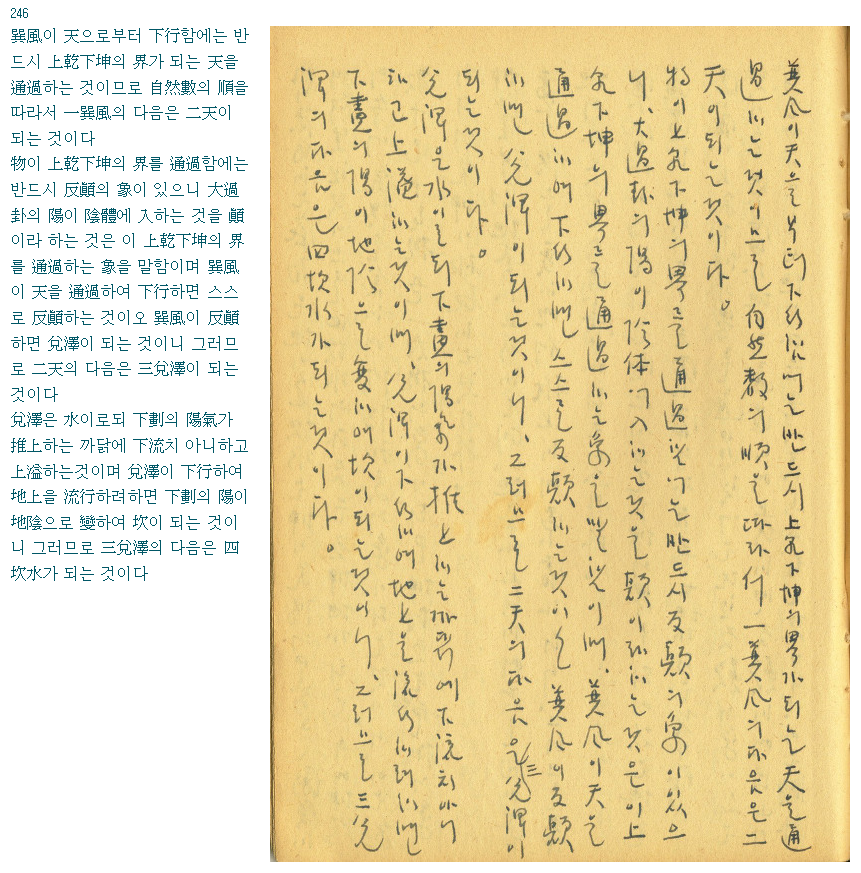 246
巽風이 天으로부터 下行함에는 반
드시 上乾下坤의 界가 되는 天을
通過하는 것이므로 自然數의 順을
따라서 一巽風의 다음은 二天이
되는 것이다
物이 上乾下坤의 界를 通過함에는
반드시 反顚의 象이 있으니 大過
卦의 陽이 陰體에 入하는 것을 顚
이라 하는 것은 이 上乾下坤의 界
를 通過하는 象을 말함이며 巽風
이 天을 通過하여 下行하면 스스
로 反顚하는 것이오 巽風이 反顚
하면 兌澤이 되는 것이니 그러므
로 二天의 다음은 三兌澤이 되는
것이다
兌澤은 水이로되 下劃의 陽氣가
推上하는 까닭에 下流치 아니하고
上溢하는것이며 兌澤이 下行하여
地上을 流行하려하면 下劃의 陽이
地陰으로 變하여 坎이 되는 것이
니 그러므로 三兌澤의 다음은 四
坎水가 되는 것이다
巽風이 天으로부터 下行함에는 반드시 上乾下坤의 界가 되는 天을 通
過하는 것이므로 自然數의 順을 따라서 一巽風의 다음은 二
天이 되는 것이다。
物이 上乾下坤의 界를 通過함에는 반드시 反顚의 象이 있으
니、大過卦의 陽이 陰体에 入하는 것을 顚이라 하는 것은 이 上
乾下坤의 界를 通過하는 象을 말함이며、巽風이 天을
通過하여 下行하면 스스로 反顚하는 것이오 巽風이 反顚
하면 兌澤이 되는 것이니、그러므로 二天의 다음은 三兌澤이
되는 것이다。
兌澤은 水이로되 下畫의 陽氣가 推上하는 까닭에 下流치 아니
하고 上溢하는 것이며、兌澤이 下行하여 地上을 流行하려하면
下畫의 陽이 地陰으로 變하여 坎이 되는 것이니、그러므로 三兌
澤의 다음은 四坎水가 되는 것이다。